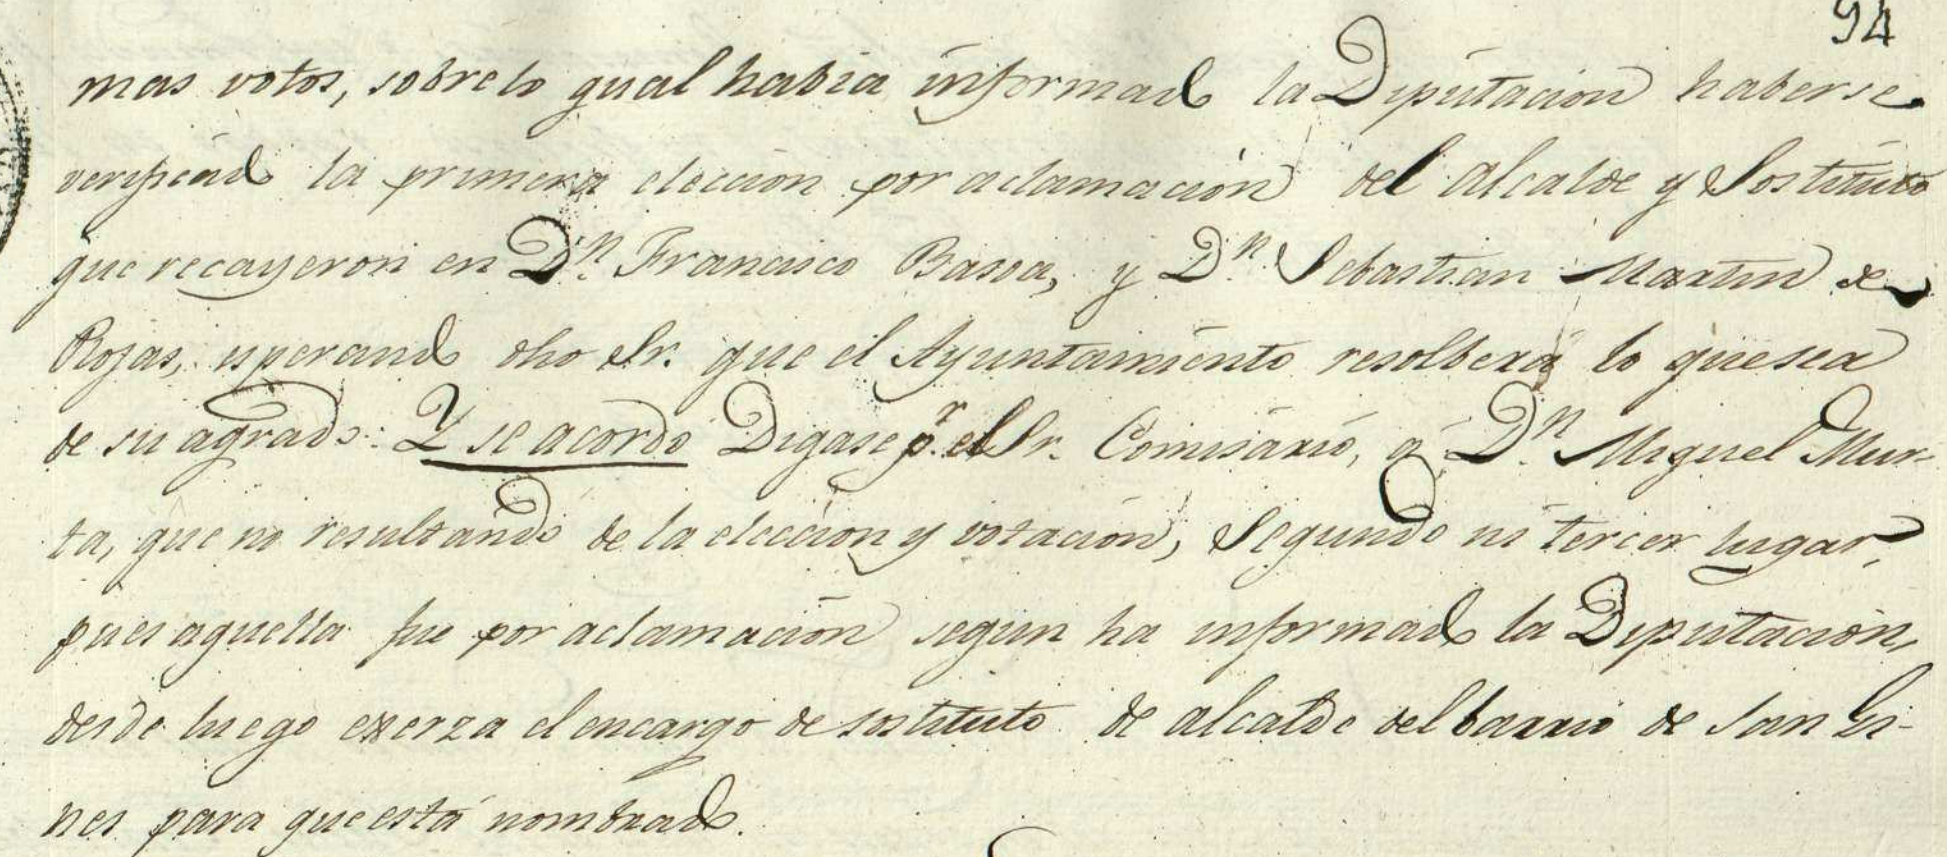 94
mas votos, sobre lo qual habia informado la Diputacion haberse
verificado la primera eleccion por aclamación del Alcalde y Sostituto
que recayeron en Dn. Francisco Basoa, y Dn. Sebastian Martin de
Rojas, esperando dho Sr. que el Ayuntamiento resolberá lo que sea
de su agrado: Y se acordó Digase pr. el Sr. Comisario, á Dn. Miguel Mur-
ta, que no resultando de la eleccion y votacion, Segundo ni tercer lugar,
pues aquella fue por aclamación segun ha informado la Diputacion,
desde luego exerza el encargo de sostituto de alcalde del barrio de San Gi-
nes para que está nombrado.